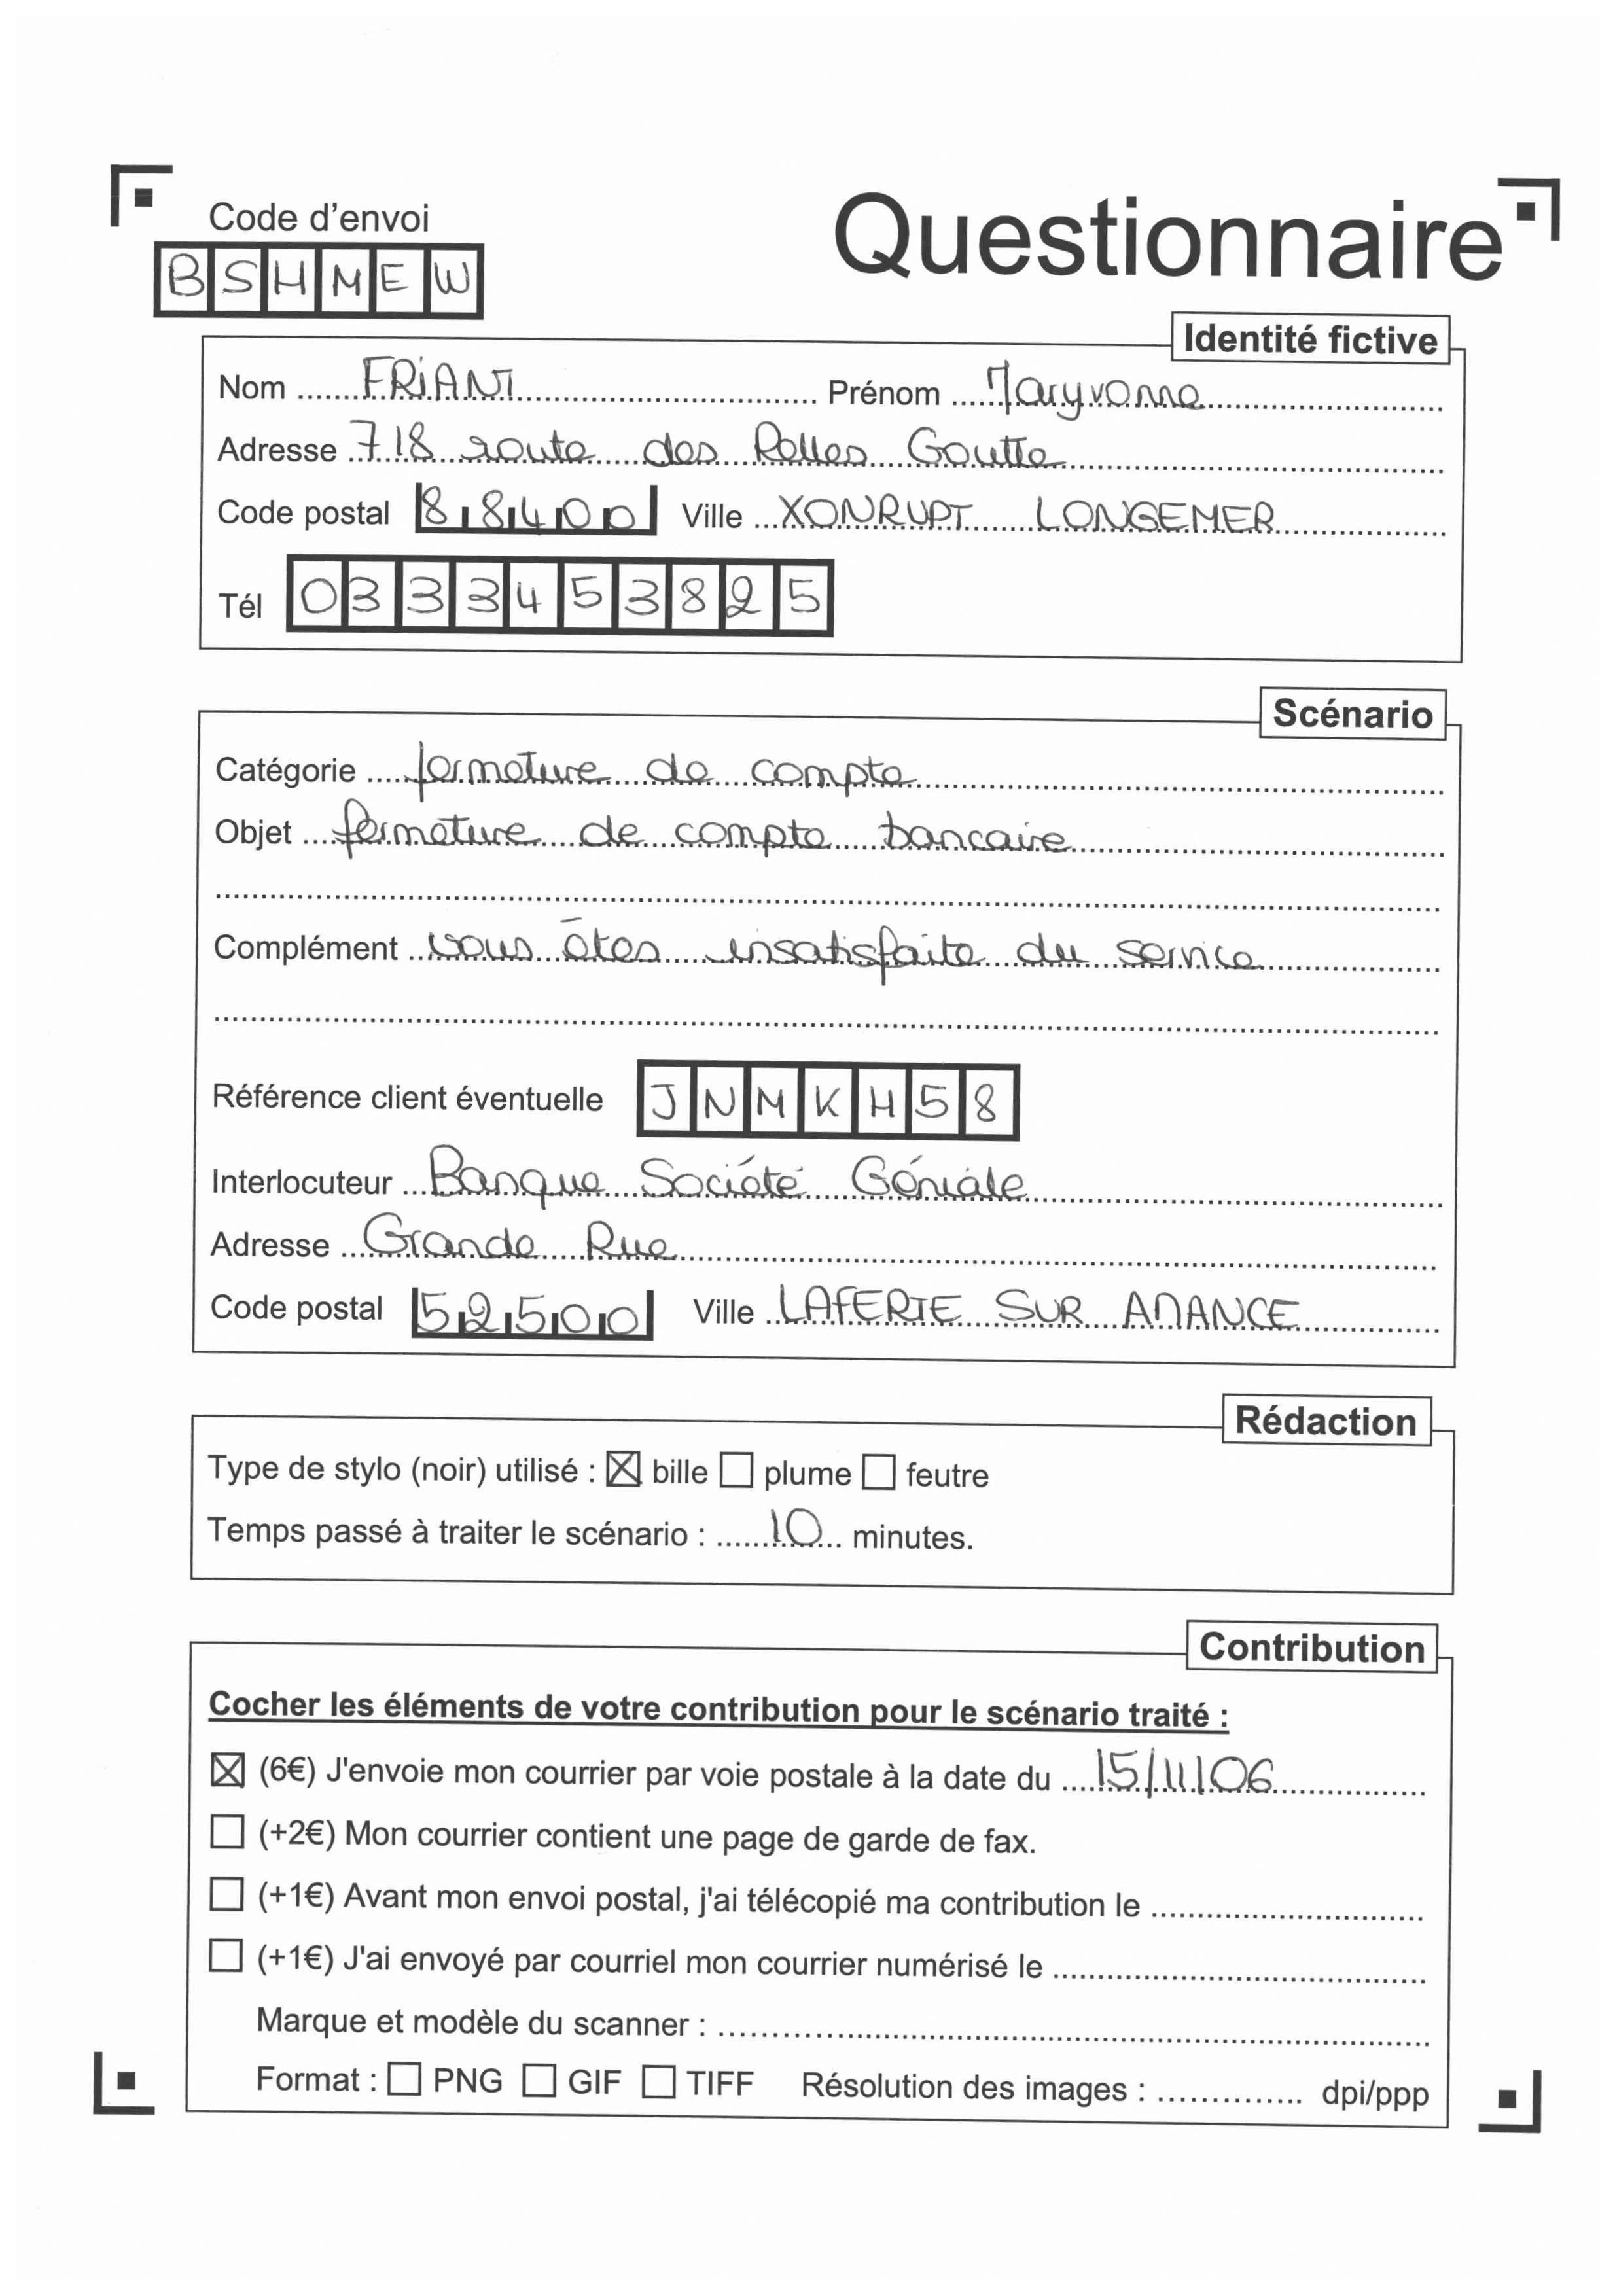 Code d'envoi
Questionnaire
BSHMEW
Identité fictive
Nom FRIANT Prénom Maryvonne
Adresse 718 route des Relles Goutte
Code postal 88400 Ville XONRUPT LONGEMER
Tél 0333453825
Scénario
Catégorie fermeture de compte
Objet fermeture de compte bancaire
Complément vous êtes insatisfaite du service
Référence client éventuelle JNMKH58
Interlocuteur Banque Société Géniale
Adresse Grande Rue
Code postal 52500 Ville LAFERTE SUR AMANCE
Rédaction
Type de stylo (noir) utilisé : ☒ bille ☐ plume ☐ feutre
Temps passé à traiter le scénario : 10 minutes.
Contribution
Cocher les éléments de votre contribution pour le scénario traité :
☒ (6€) J'envoie mon courrier par voie postale à la date du 15/11/06
☐ (+2€) Mon courrier contient une page de garde de fax.
☐ (+1€) Avant mon envoi postal, j'ai télécopié ma contribution le
☐ (+1€) J'ai envoyé par courriel mon courrier numérisé le
Marque et modèle du scanner :
Format : ☐ PNG ☐ GIF ☐ TIFF Résolution des images : dpi/ppp